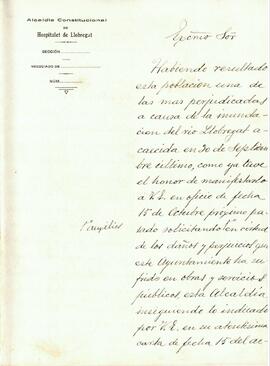 Alcaldía Constitucional
DE
Hospitalet de Llobregat
SECCIÓN
NEGOCIADO DE
NÚM.
Excmo Sor
Habiendo resultado
esta población una de
las mas perjudicadas
a causa de la inunda-
cion del rio Llobregat a-
caecida en 30 de Septiem-
bre último, como ya tuve
el honor de manifestarlo
a V.E. en oficio de fecha
15 de Octubre próximo pa-
sado solicitando en virtud
auxilios
de los daños y perjuicios que
este Ayuntamiento ha su-
frido en obras y servicios
públicos, esta Alcaldía
siguiendo lo indicado
por V.E. en su atentísima
carta de fecha 15 del ac-